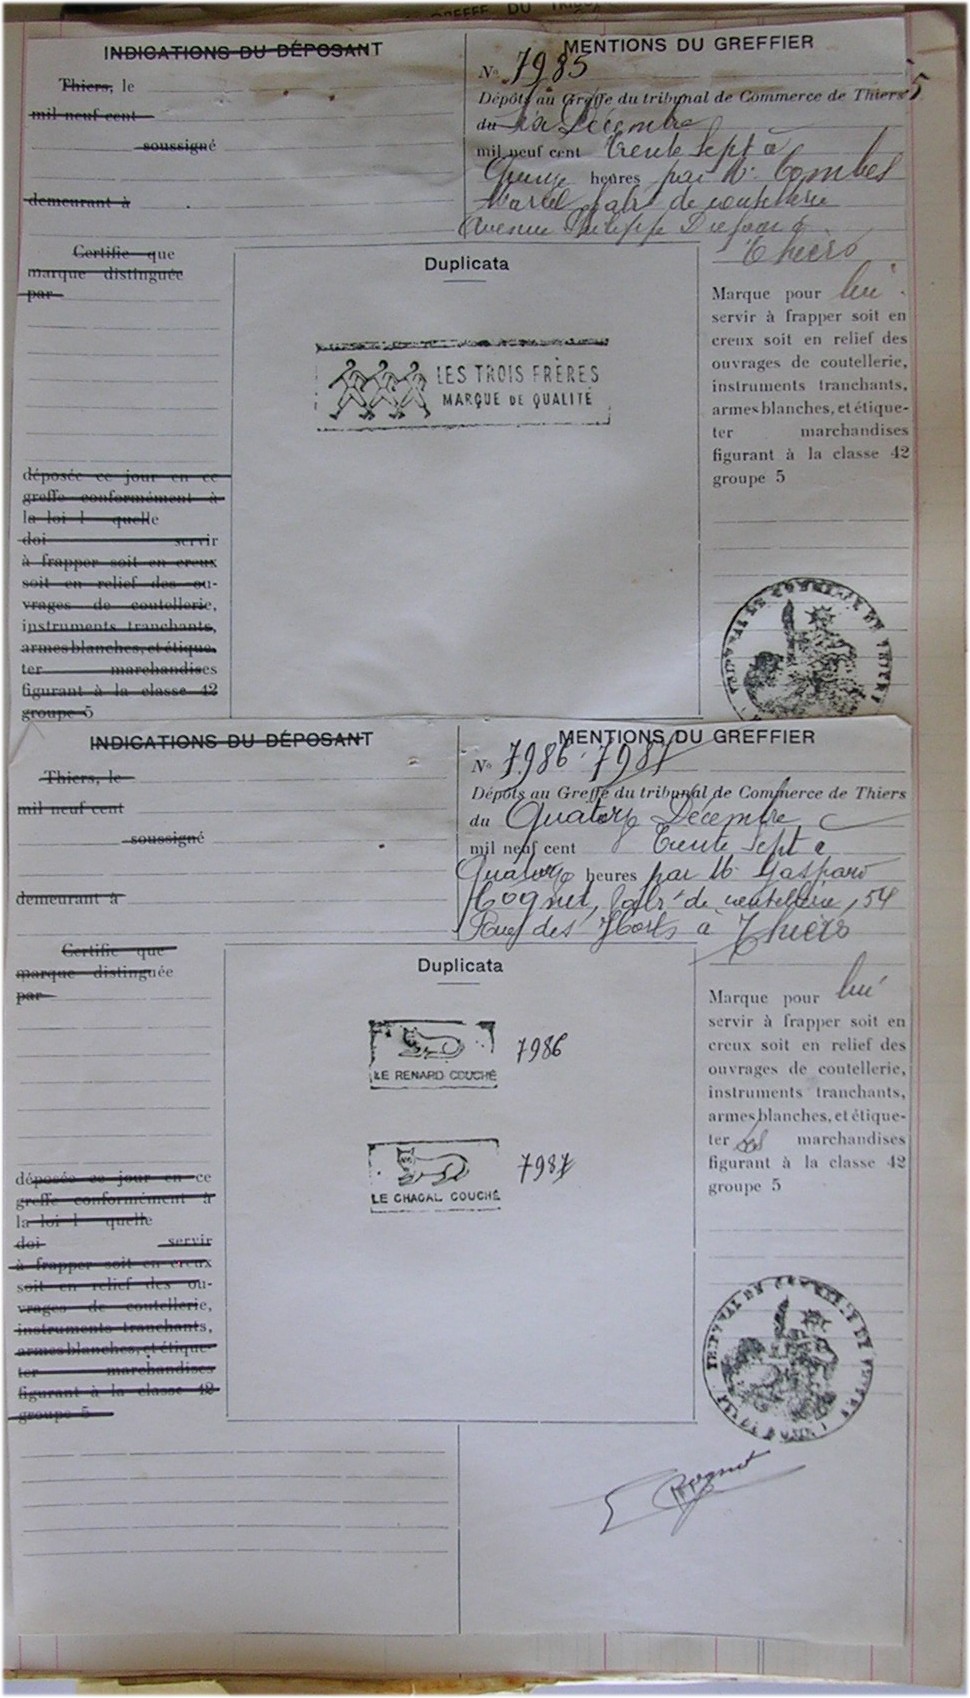 GREFFE DU
INDICATIONS DU DÉPOSANT
Thiers, le
mil neuf cent
soussigné
demeurant à
Certifie que
marque distinguée
par
déposée ce jour en ce
greffe conformément à
la loi l quelle
doi servir
à frapper soit en creux
soit en relief des ou-
vrages de coutellerie,
instruments tranchants,
armes blanches, et étique-
ter marchandises
figurant à la classe 42
groupe 5
MENTIONS DU GREFFIER
No 7985
Dépôts au Greffe du tribunal de Commerce de Thiers
du Décembre
mil neuf cent trente sept à
heures par M. Combes
Marcel fabt de coutellerie
Avenue Philippe à
Thiers
Duplicata
LES TROIS FRÈRES
MARQUE DE QUALITÉ
Marque pour lui
servir à frapper soit en
creux soit en relief des
ouvrages de coutellerie,
instruments tranchants,
armes blanches, et étique-
ter marchandises
figurant à la classe 42
groupe 5
TRIBUNAL DE COMMERCE DE THIERS
INDICATIONS DU DÉPOSANT
Thiers, le
mil neuf cent
soussigné
demeurant à
Certifie que
marque distinguée
par
déposée ce jour en ce
greffe conformément à
la loi l quelle
doi servir
à frapper soit en creux
soit en relief des ou-
vrages de coutellerie,
instruments tranchants,
armes blanches, et étique-
ter marchandises
figurant à la classe 42
groupe 5
MENTIONS DU GREFFIER
No 7986 - 7987
Dépôts au Greffe du tribunal de Commerce de Thiers
du Quatorze Décembre
mil neuf cent Trente sept à
Quatorze heures par M.
fabt de coutellerie, 54
Rue des Horts à Thiers
Duplicata
LE RENARD COUCHÉ
7986
LE CHACAL COUCHÉ
7987
Marque pour lui
servir à frapper soit en
creux soit en relief des
ouvrages de coutellerie,
instruments tranchants,
armes blanches, et étique-
ter ses marchandises
figurant à la classe 42
groupe 5
TRIBUNAL DE COMMERCE DE THIERS